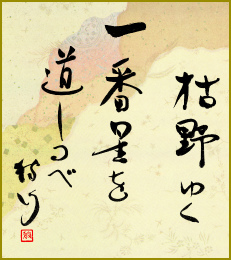 枯野ゆく
一番星を
道しるべ